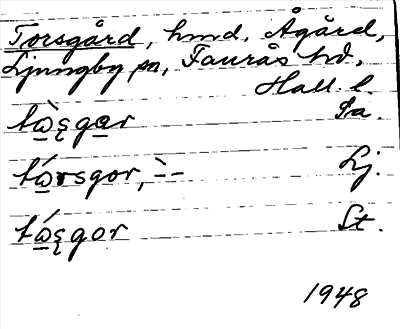 Torsgård, hmd, Ågård,
Ljungby sn, Faurås hd,
Hall. l.
tὼs̨gar Sa.
tώrsgor, ̀-- Lj.
tώs̨gor St.
1948